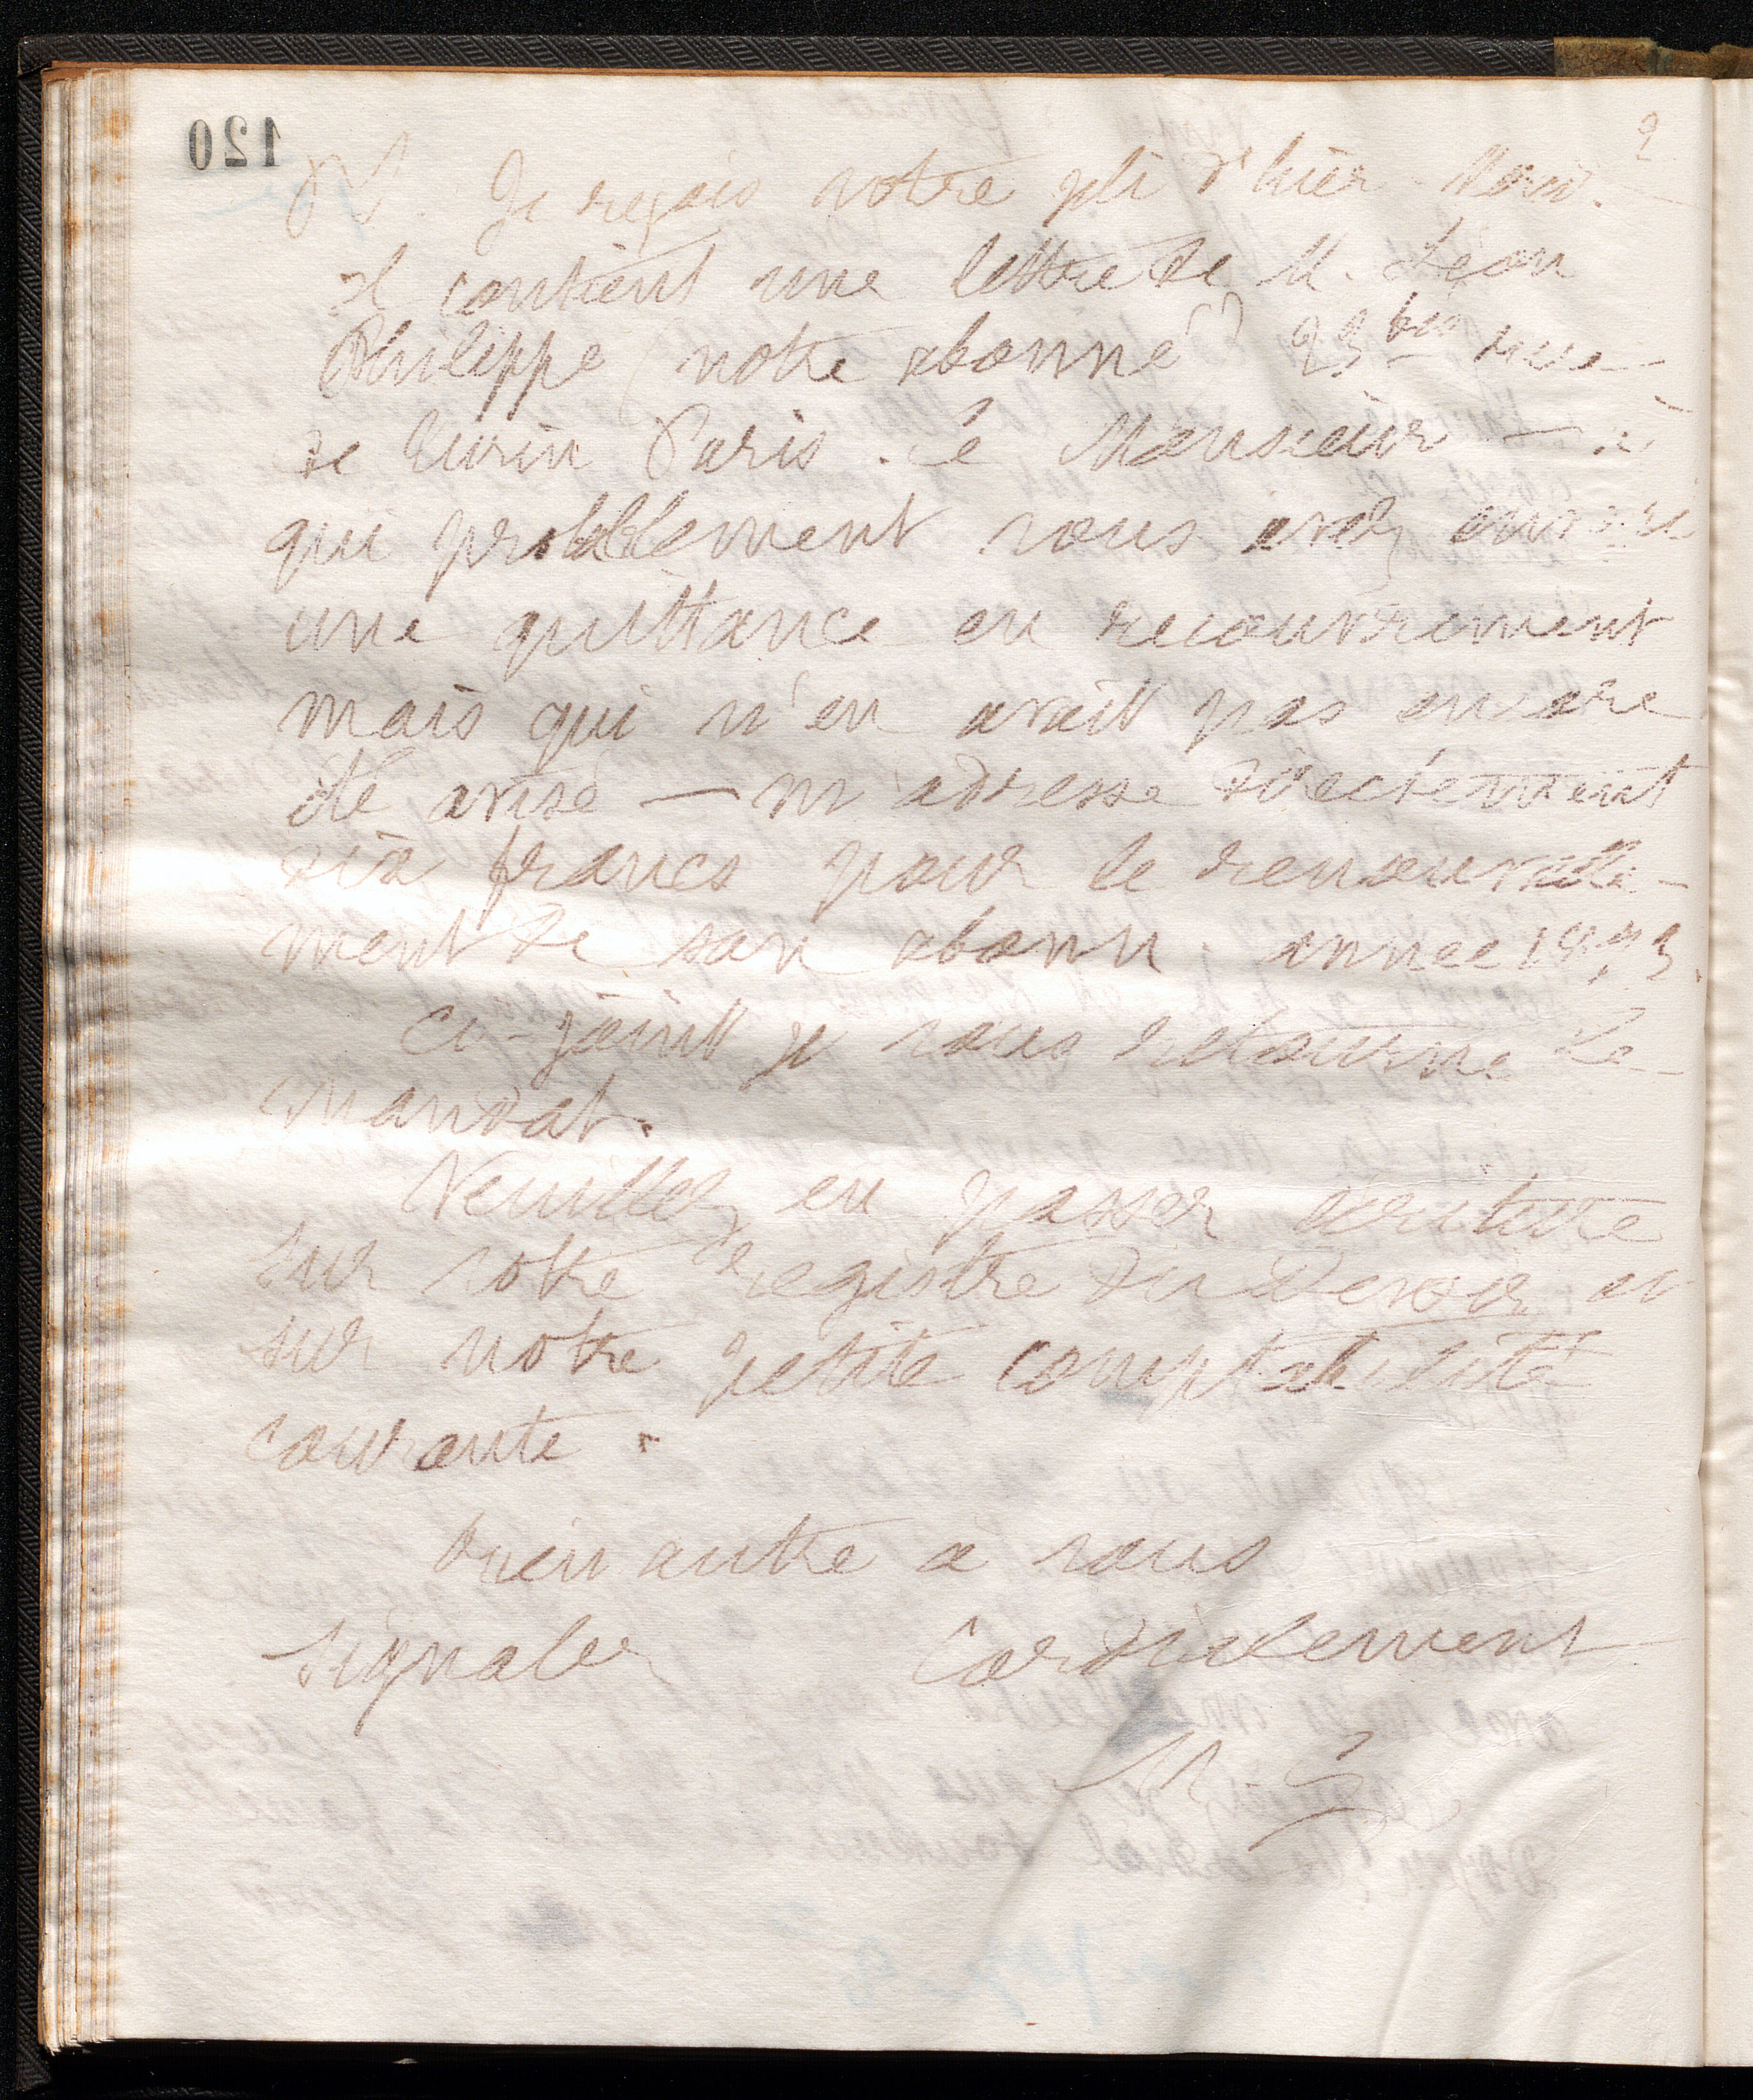 2
120
PS. Je reçois votre pli d'hier. Merci.
Il contient une lettre de M. Léon
Philippe (notre abonné) 23 bis rue
de Turin Paris. Ce Monsieur – à
qui probablement vous avez envoyé
une quittance en recouvrement
mais qui n'en avait pas encore
été avisé – m'adresse directement
dix francs pour le renouvelle-
ment de son abonn. année 1893.
Ci-joint je vous retourne le
mandat.
Veuillez en passer écriture
sur votre registre du Devoir et
sur notre petite comptabilité
courante.
Rien autre à vous
signaler Cordialement